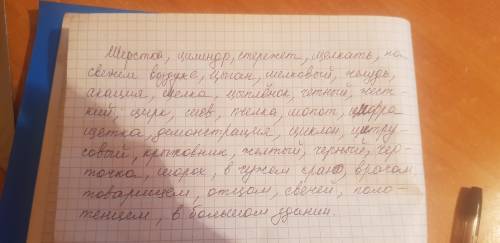 Шерстка, цилиндр, стережет, щелкать, на
свежем воздухе, цыган, шелковый, чьлудь,
акация, щелка, цыплёнок, четный, жест
кий, цирк, шов, пчелка, шопот, цифра
щетка, демонстрация, циклон, цитру-
совый, крыжовник, желтый, черный, чер-
точка, шорох, в чужом краю, врагом,
товарищем, отцом, свечей, поло-
тенцем, в большом здании.